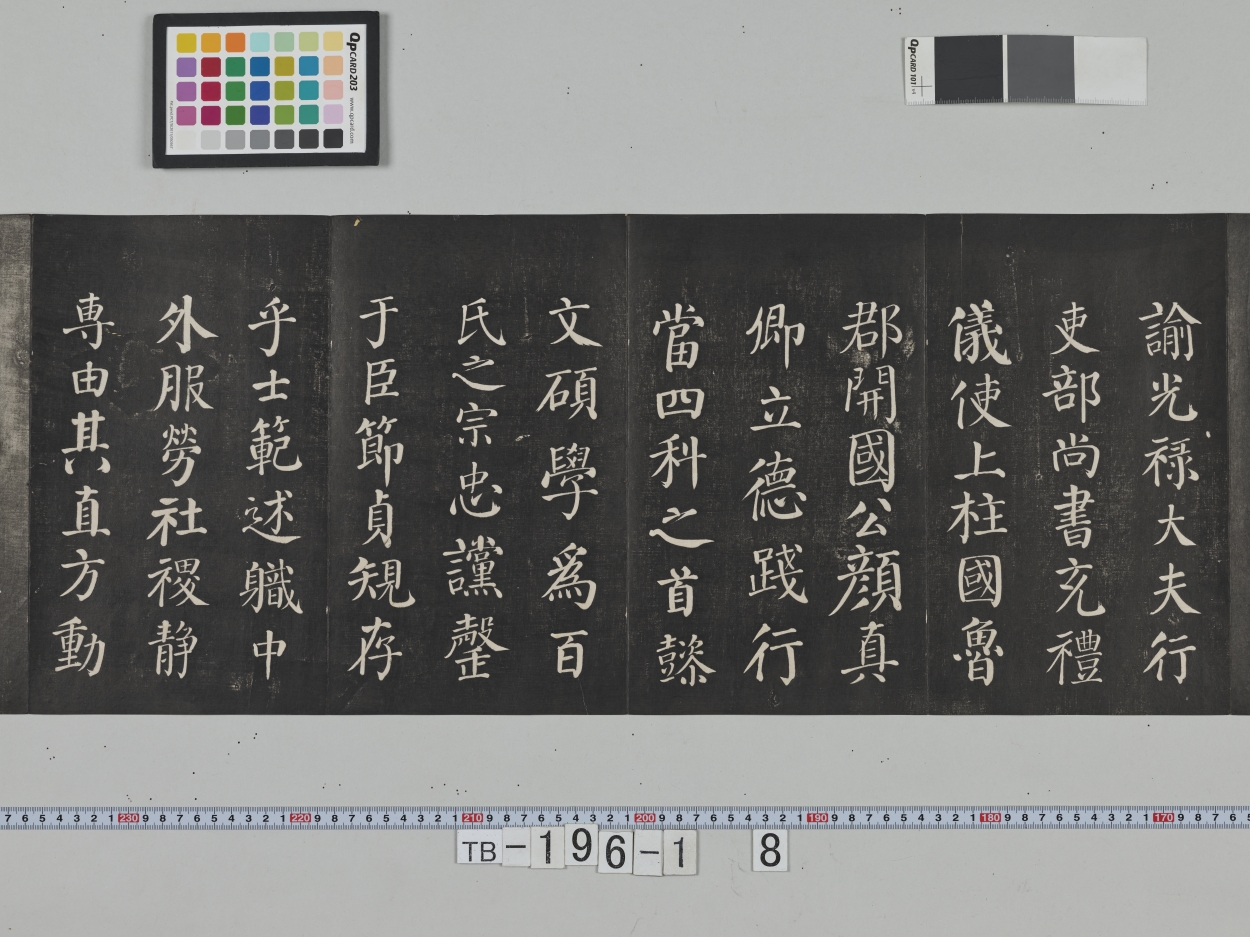 諭光禄大夫行
吏部尚書充禮
儀使上柱國魯
郡開國公顔真
卿立德踐行
當四科之首懿
文碩學為百
氏之宗忠讜罄
于臣節貞規存
乎士範述職中
外服勞社稷静
専由其直方動
QPCARD 203 www.qpcard.com
QPCARD 101
7 6 5 4 3 2 1 230 9 8 7 6 5 4 3 2 1 220 9 8 7 6 5 4 3 2 1 210 9 8 7 6 5 4 3 2 1 200 9 8 7 6 5 4 3 2 1 190 9 8 7 6 5 4 3 2 1 180 9 8 7 6 5 4 3 2 1 170 9 8 7 6
TB-196-1 8